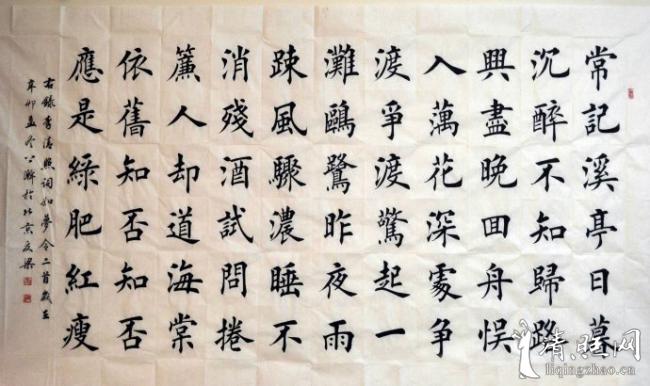 常記溪亭日暮
沉醉不知歸路
興盡晚回舟悞
入蕅花深處爭
渡爭渡驚起一
灘鷗鷺昨夜雨
疎風驟濃睡不
消殘酒試問捲
簾人却道海棠
依舊知否知否
應是綠肥紅瘦
右錄李清照詞如夢令二首歲在
辛卯孟冬於北京
清照网
liqingzhao.cn